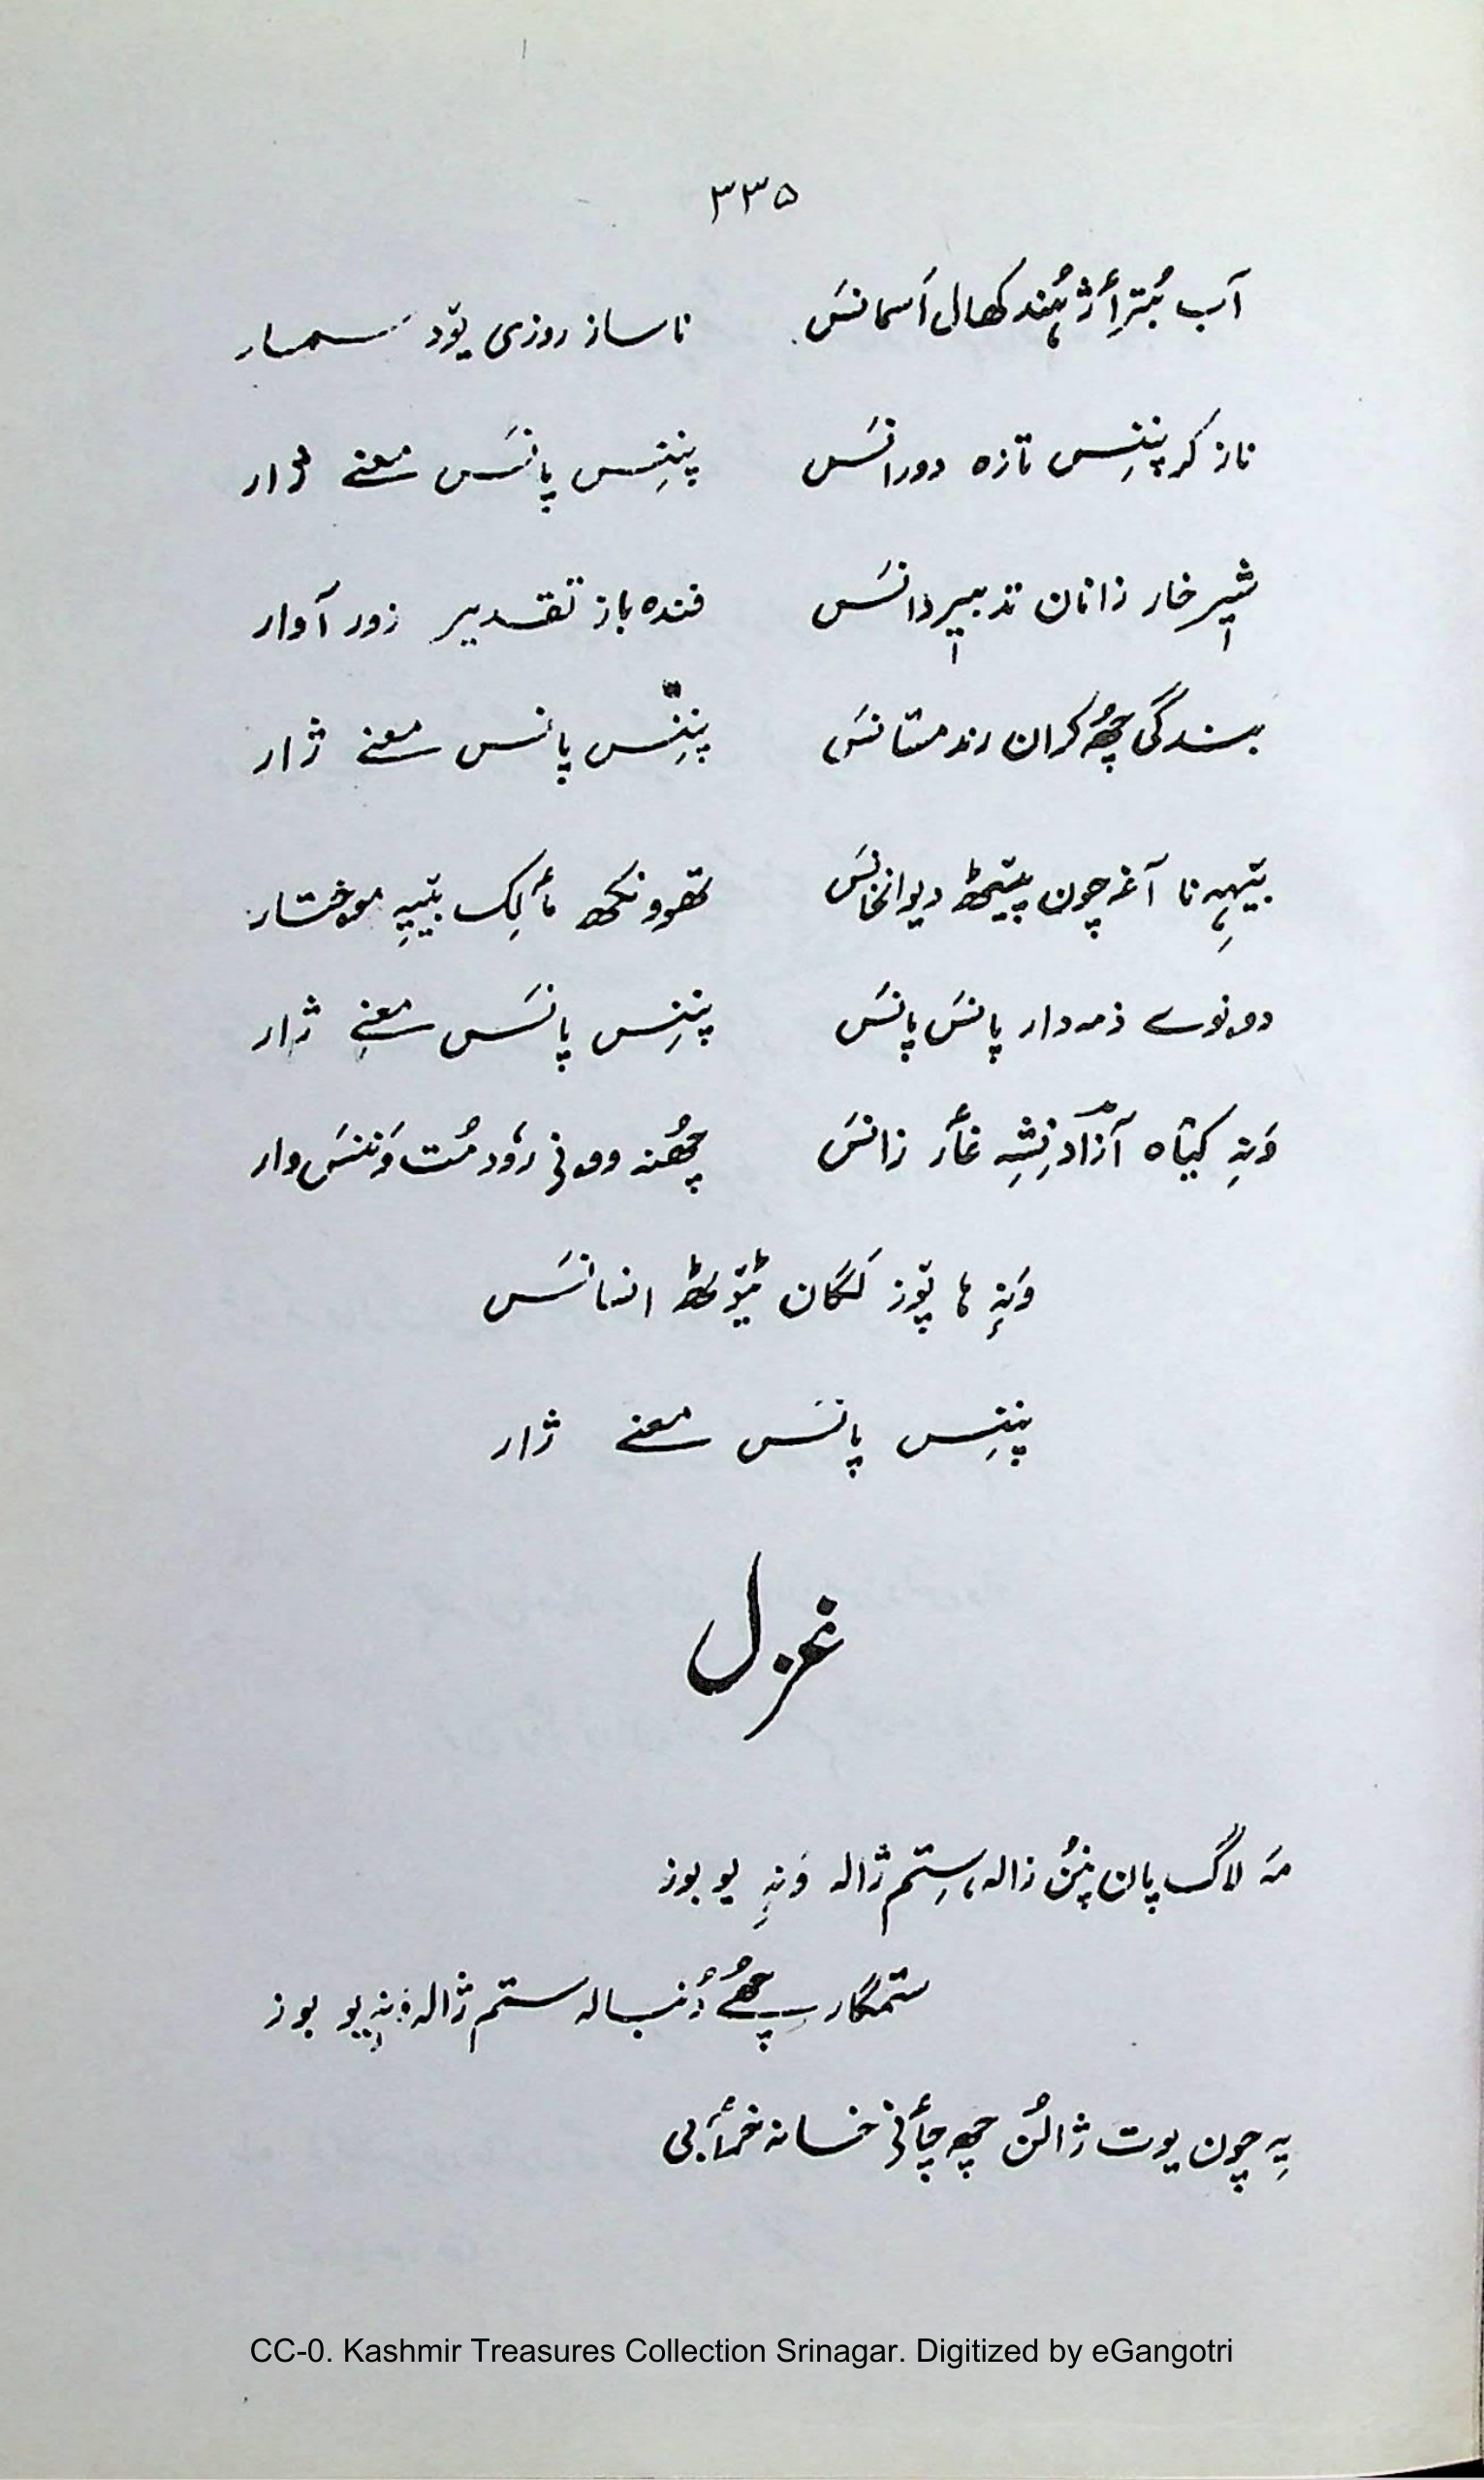 ۳۳۵
آب بُترٲژ ہُند کھال اَسمانَس ناساز روزی یۆد سمسار
ناز کر پننِس تازہ دورانَس پننِس پانَس معنے ژار
شیٖرخار زانان تدبیٖر دانَس فندہ باز تقدیر زور آوار
بندگی چھُ کران رند مستانَس پننِس پانس معنے ژار
بیٚہِہ نا آغہ چون پیٚٹھ دیوانخانَس تھوونکھ مٲلِک بیٚیہِ موختار
دۄنوے ذمہ دار پانَس پانَس پننِس پانَس معنے ژار
وَنہِ کیٚاہ آزاد نِشہِ غٲر زانَس چھُنہ وۄنی رۆدمُت وَننَس وار
وَنہٕ ہا پۆز لگان ٹیٚۆٹھ انسانَس
پننِس پانَس معنے ژار
غزل
مَہ لاگ پان پنُن زالہ، سِتم ژالہ وَنہٕ یو بوز
ستمگار چھُے دُنبالہ ستم ژالہ وَنہٕ یو بوز
یہِ چون یوت ژالُن چھ چٲنی خانہ خرٲبی
CC-0. Kashmir Treasures Collection Srinagar. Digitized by eGangotri